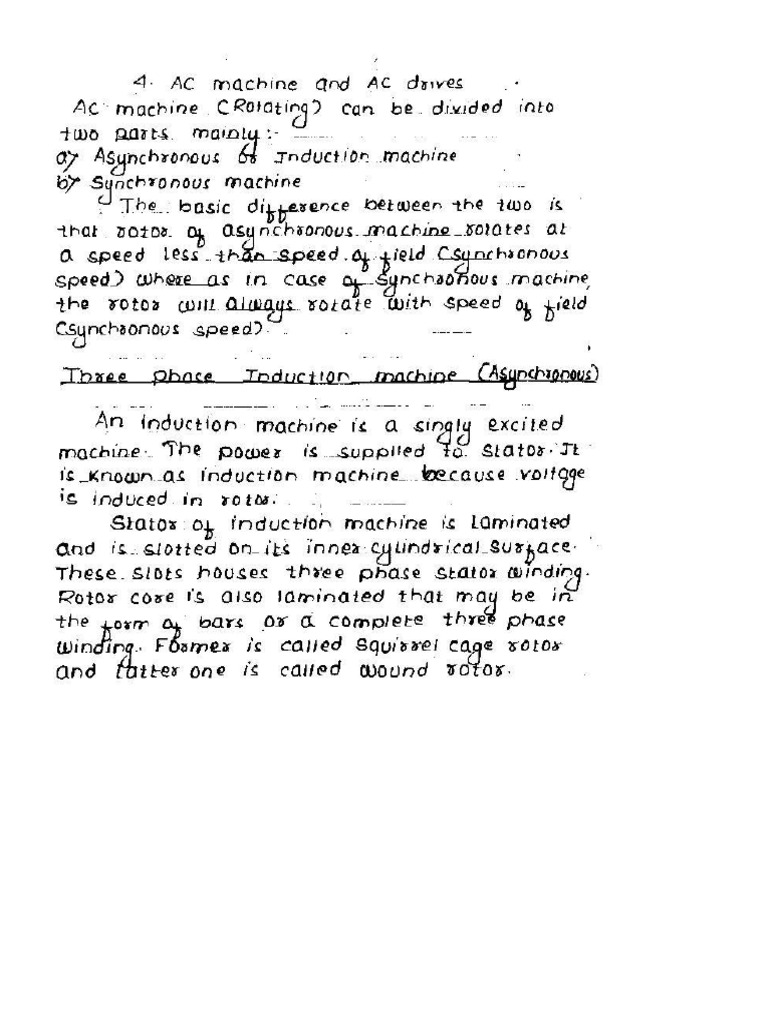 4. AC machine and AC drives
AC machine (Rotating) can be divided into
two parts mainly:-
a) Asynchronous or Induction machine
b) Synchronous machine
The basic difference between the two is
that rotor of asynchronous machine rotates at
a speed less than speed of field (synchronous
speed) where as in case of synchronous machine,
the rotor will always rotate with speed of field
(synchronous speed).
Three phace Induction machine (Asynchronous)
An induction machine is a singly excited
machine. The power is supplied to stator. It
is known as induction machine because voltage
is induced in rotor.
Stator of induction machine is laminated
and is slotted on its inner cylindrical surface.
These slots houses three phase stator winding.
Rotor core is also laminated that may be in
the form of bars or a complete three phase
winding. Former is called squirrel cage rotor
and latter one is called wound rotor.